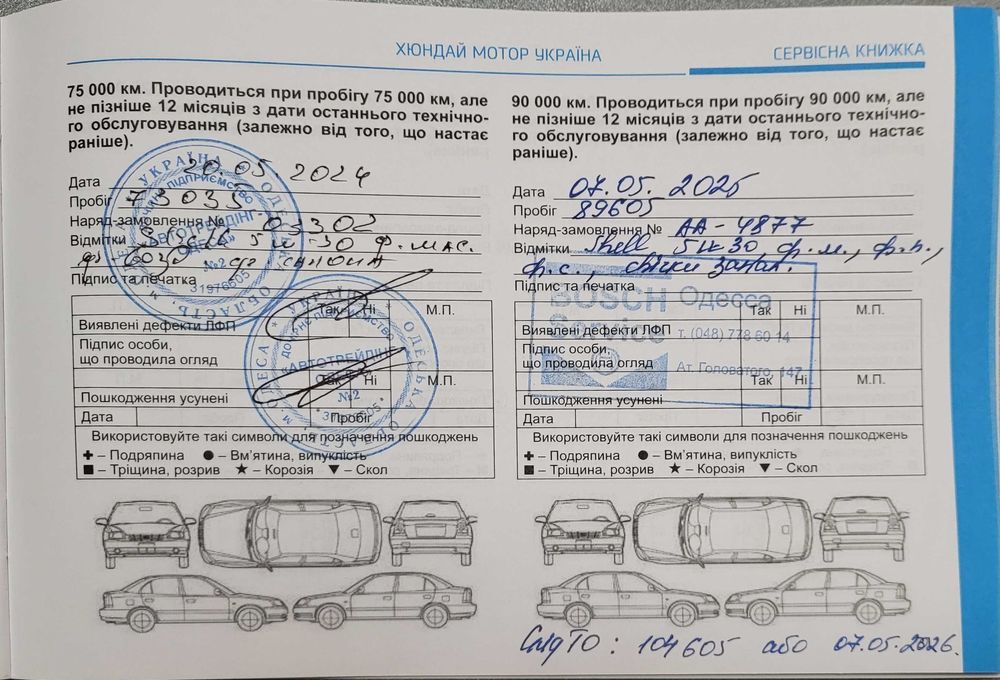 ХЮНДАЙ МОТОР УКРАЇНА
СЕРВІСНА КНИЖКА
75 000 км. Проводиться при пробігу 75 000 км, але
не пізніше 12 місяців з дати останнього технічно-
го обслуговування (залежно від того, що настає
раніше).
Дата 20.05.2024
Пробіг 73035
Наряд-замовлення № 03302
Відмітки 5W-30 ф. мас.
салона
Підпис та печатка
Так Ні М.П.
Виявлені дефекти ЛФП
Підпис особи,
що проводила огляд
Так Ні М.П.
Пошкодження усунені
Дата Пробіг
Використовуйте такі символи для позначення пошкоджень
– Подряпина – Вм’ятина, випуклість
– Тріщина, розрив – Корозія – Скол
УКРАЇНА * ОДЕСЬКА ОБЛАСТЬ, М. ОДЕСА
ДОЧІРНЄ ПІДПРИЄМСТВО
«АВТОТРЕЙДІНГ-
ОДЕСА»
№2
31976505
УКРАЇНА * ОДЕСЬКА ОБЛАСТЬ, М. ОДЕСА
ДОЧІРНЄ ПІДПРИЄМСТВО
«АВТОТРЕЙДІНГ-
ОДЕСА»
№2
31976505
90 000 км. Проводиться при пробігу 90 000 км, але
не пізніше 12 місяців з дати останнього технічно-
го обслуговування (залежно від того, що настає
раніше).
Дата 07.05.2025
Пробіг 89605
Наряд-замовлення № АА-4877
Відмітки Shell 5W30 ф.м., ф.п.,
ф.с., свічки запал.
Підпис та печатка
BOSCH Одесса
Service т. (048) 778 60 14
Ат. Головатого, 147
Так Ні М.П.
Виявлені дефекти ЛФП
Підпис особи,
що проводила огляд
Так Ні М.П.
Пошкодження усунені
Дата Пробіг
Використовуйте такі символи для позначення пошкоджень
– Подряпина – Вм’ятина, випуклість
– Тріщина, розрив – Корозія – Скол
СлідТО: 104605 або 07.05.2026.